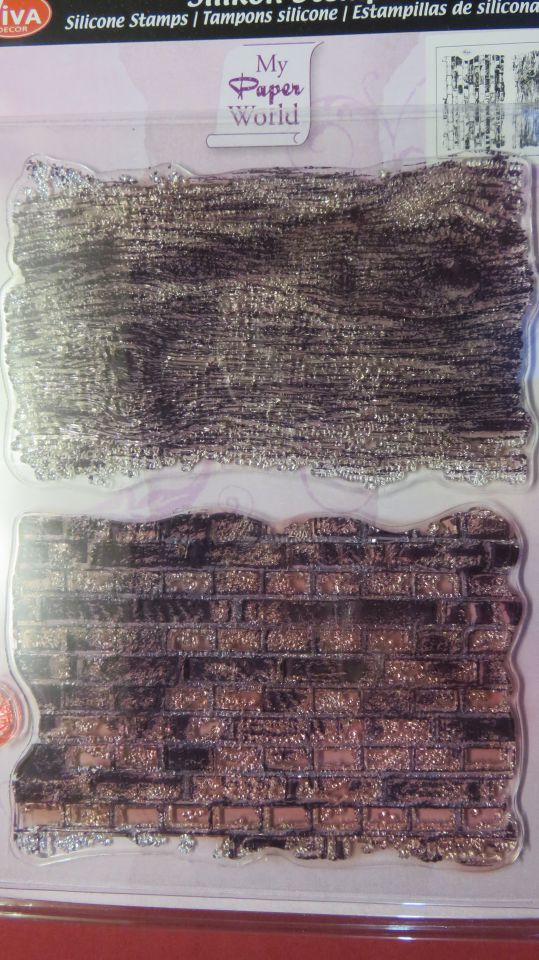 VIVA
DECOR
Silicone Stamps | Tampons silicone | Estampillas de silicona
My
Paper
World